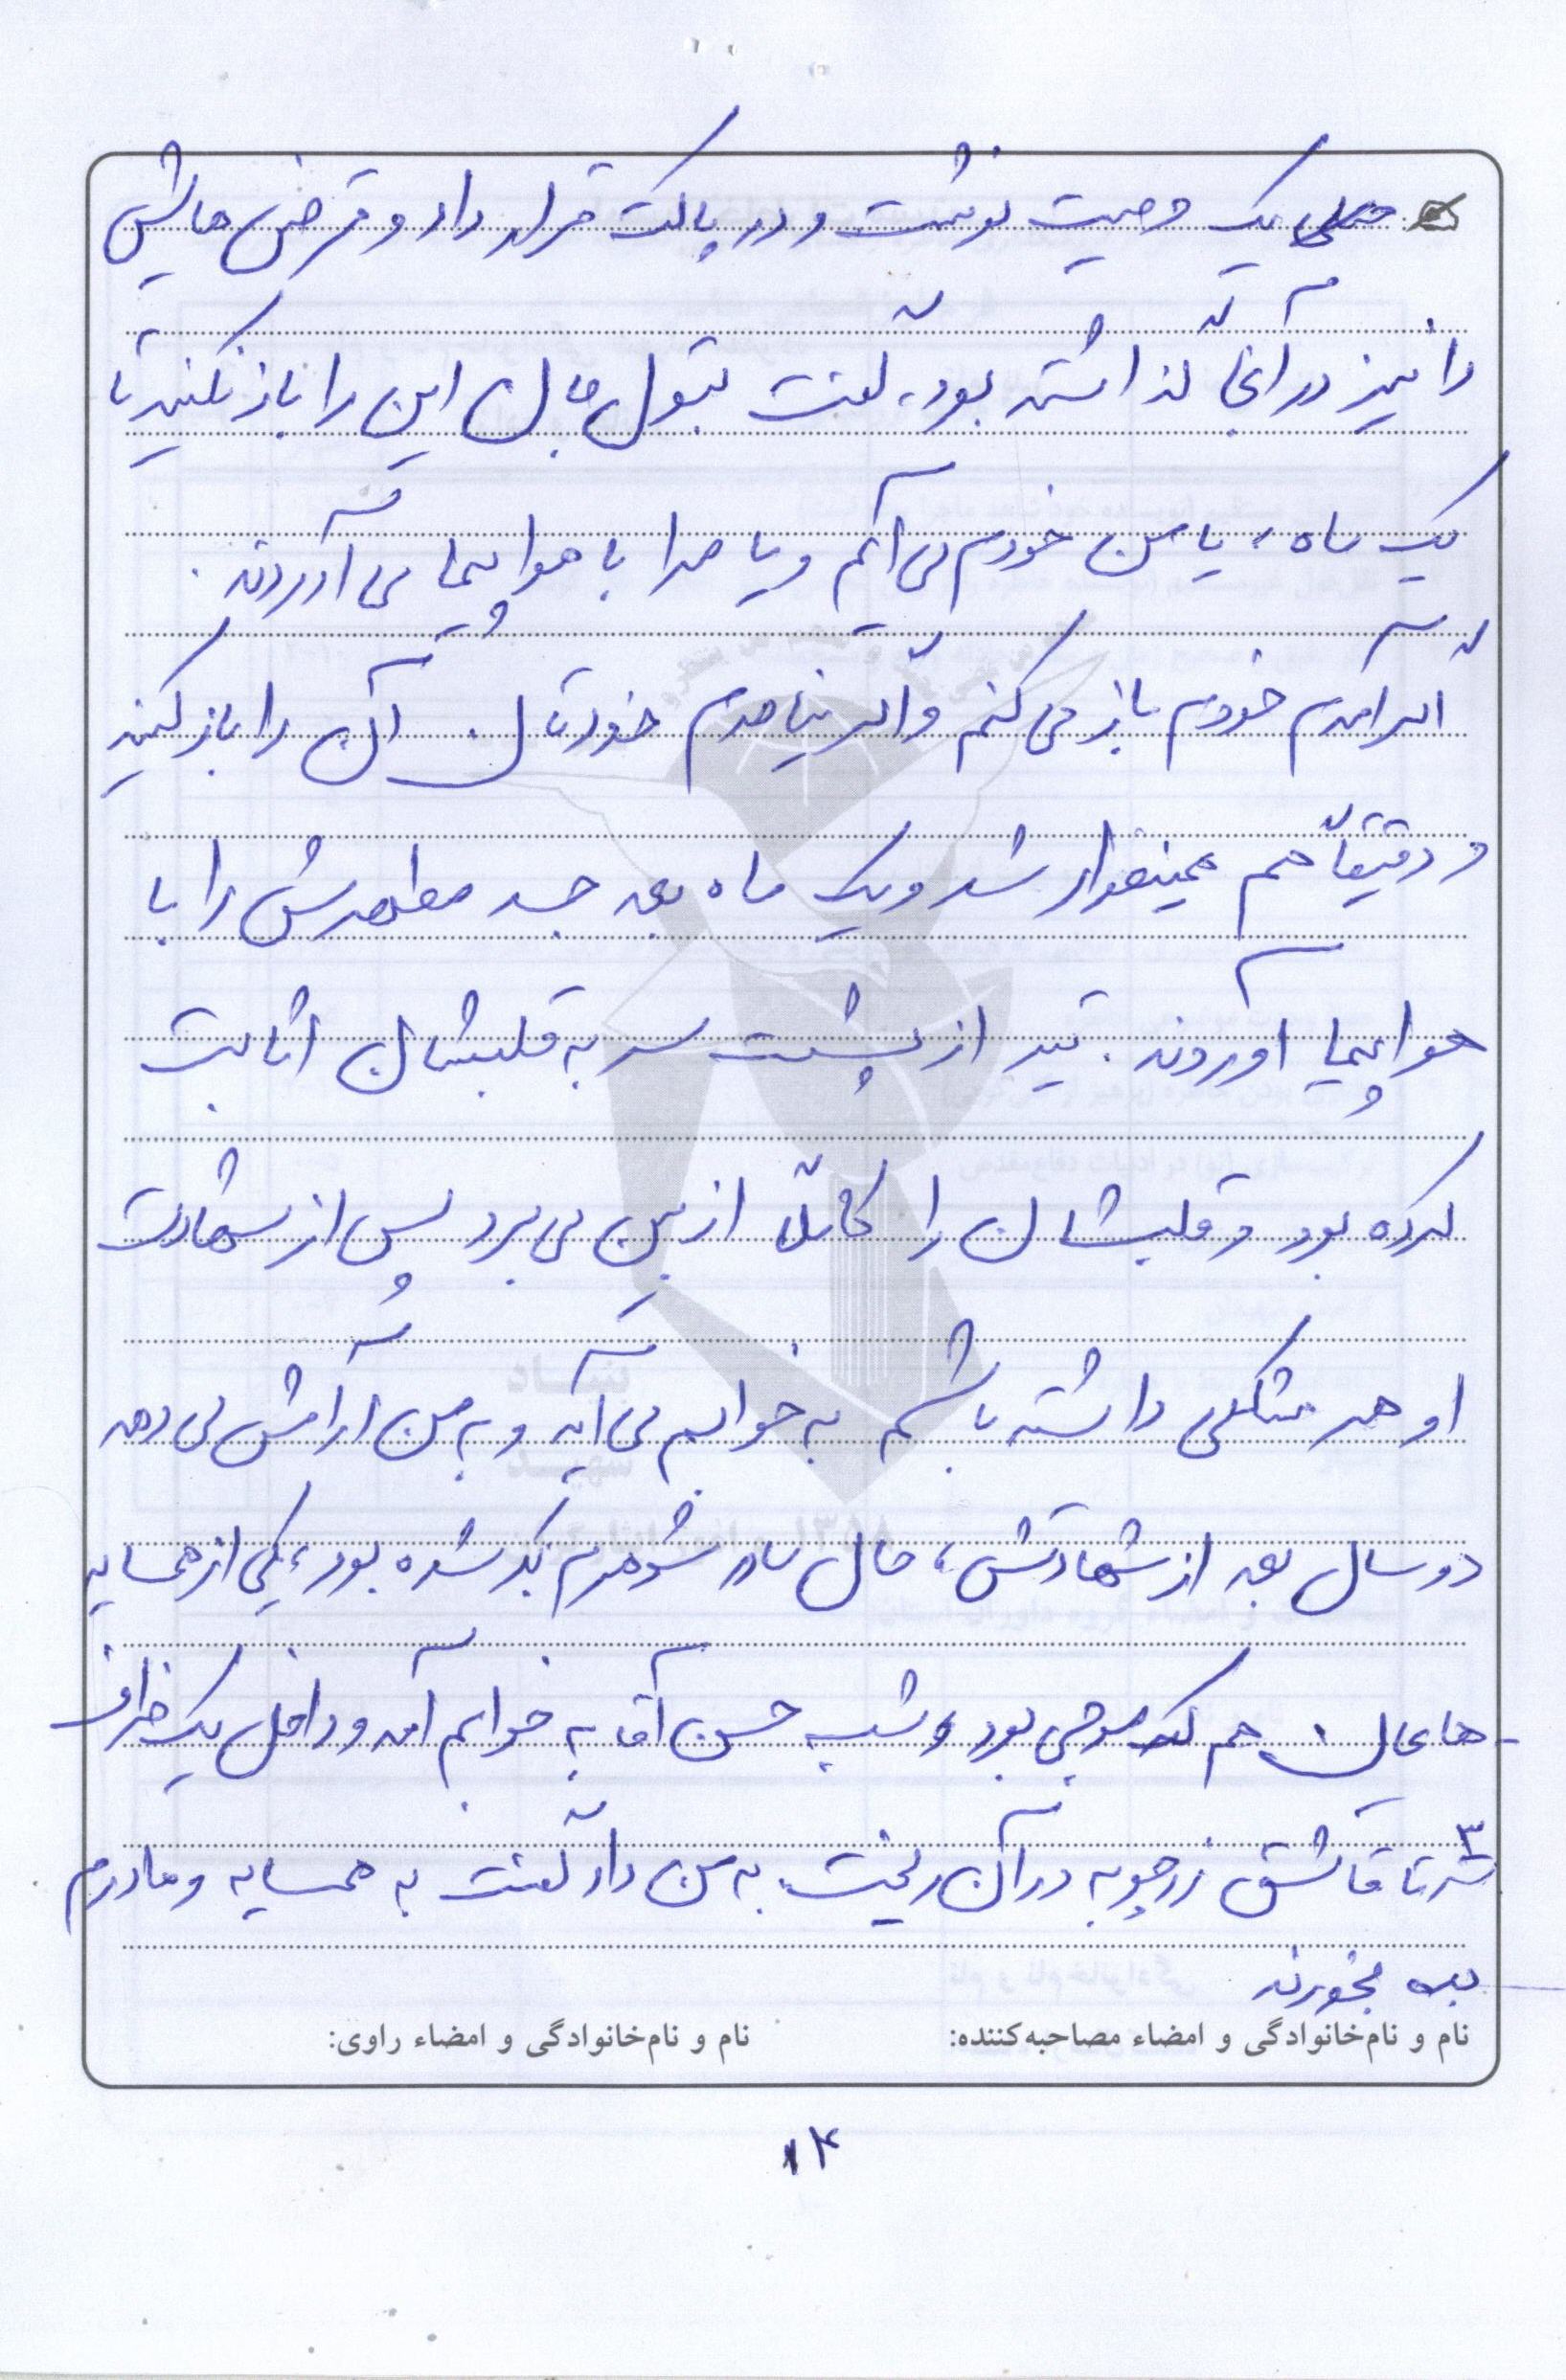 یک وصیت نوشت و در پاکت قرار داد و قرض هایش
را نیز در آنجا گذاشته بود، گفت بتول جان این را باز نکنید تا
یک ماه، یا من خودم می آیم و یا مرا با هواپیما می آورند.
اگر آمدم خودم باز می کنم و اگر نیامدم خودتان آن را باز کنید
و دقیقاً هم همینطور شد و یک ماه بعد جسد مطهرش را با
هواپیما آوردند. تیر از پشت سر به قلبشان اثابت
کرده بود و قلبشان را کاملاً از بین می برد پس از شهادت
او هر مشکلی داشته باشم به خوابم می آید و به من آرامش می دهد
دو سال بعد از شهادتش، حال مادر شوهرم بد شده بود، یکی از همسایه
هایمان هم موجی بود، شب حسن آقا به خوابم آمد و داخل یک ظرف
۳ تا قاشق زردچوبه در آن ریخت، به من داد گفت به همسایه و مادرم
بده بخورند
نام و نام‌خانوادگی و امضاء مصاحبه‌کننده: نام و نام‌خانوادگی و امضاء راوی:
۱۴